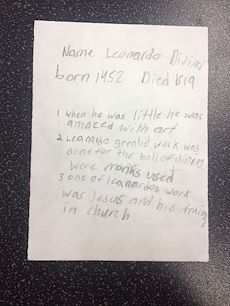 Name Leonardo Divinai
born 1452 Died 1519
1 when he was little he was
amazed with art
2 Leanardo greatest work was
done for the hall of dining
were monks used
3 one of leanardos work
was Jesus and his
in church